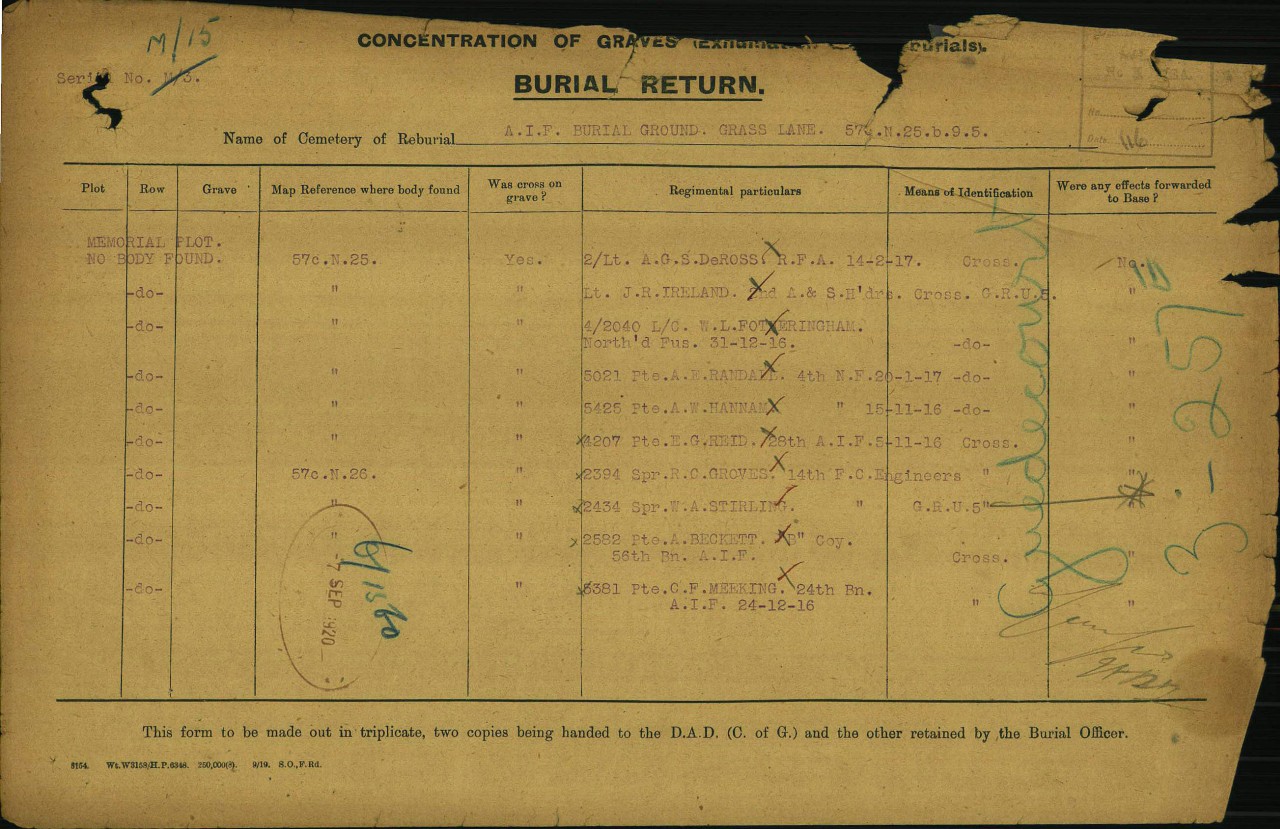 M/15
CONCENTRATION OF GRAVES (Exhumation burials).
Serial No. M/3.
BURIAL RETURN.
Name of Cemetery of Reburial A.I.F. BURIAL GROUND. GRASS LANE. 57c.N.25.b.9.5.
No.
Date 116
Plot Row Grave Map Reference where body found Was cross on grave? Regimental particulars Means of Identification Were any effects forwarded to Base?
MEMORIAL PLOT.
NO BODY FOUND. 57c.N.25. Yes. 2/Lt. A.G.S.DeROSS. R.F.A. 14-2-17. Cross. No.
-do- " " Lt. J.R.IRELAND. 2nd A.& S.H'drs. Cross. G.R.U.5. "
-do- " " 4/2040 L/C. W.L.FOTHERINGHAM.
North'd Fus. 31-12-16. -do- "
-do- " " 5021 Pte.A.E.RANDALL. 4th N.F.20-1-17 -do- "
-do- " " 5425 Pte.A.W.HANNAM. " 15-11-16 -do- "
-do- " " 4207 Pte.E.G.REID. 28th A.I.F.5-11-16 Cross. "
-do- 57c.N.26. " 2394 Spr.R.C.GROVES. 14th F.C.Engineers " "
-do- " " 2434 Spr.W.A.STIRLING. " G.R.U.5" "
-do- " " 2582 Pte.A.BECKETT. "B" Coy.
56th Bn. A.I.F. Cross. "
-do- " 5381 Pte.C.F.MEEKING. 24th Bn.
A.I.F. 24-12-16 " "
Gueudecourt
7 SEP 1920
This form to be made out in triplicate, two copies being handed to the D.A.D. (C. of G.) and the other retained by the Burial Officer.
8154. Wt.W3158/H.P.6348. 250,000(8). 9/19. S.O.,F.Rd.